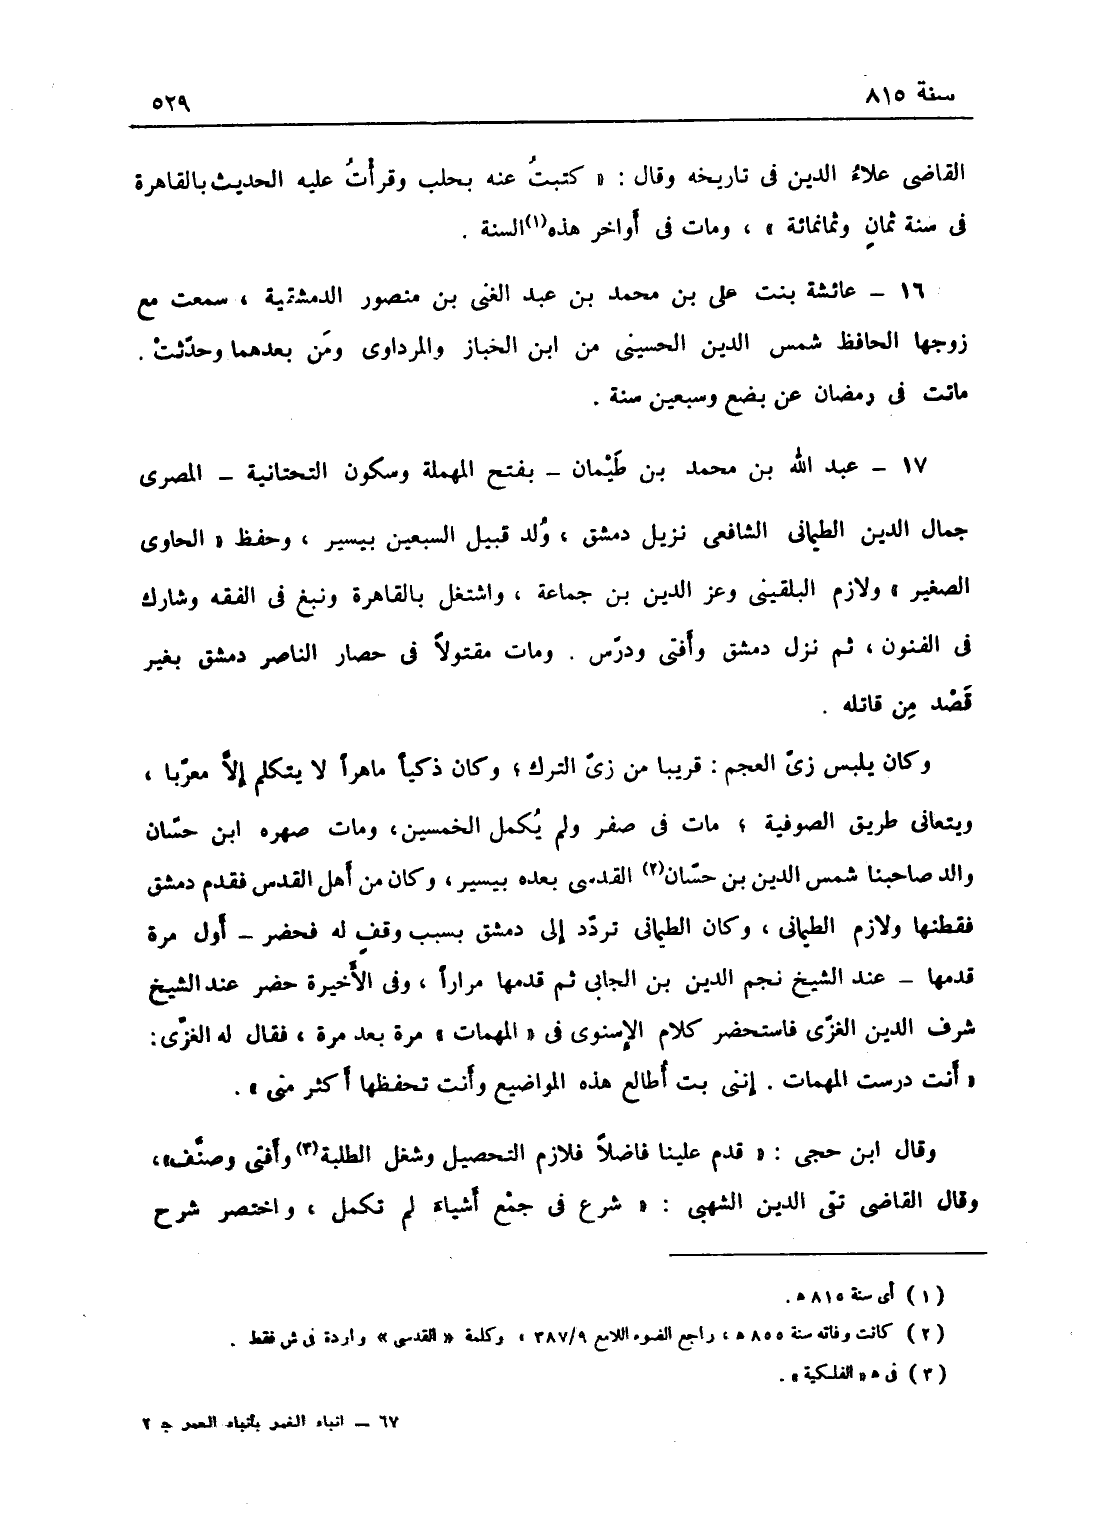 سنة ٨١٥
٥٢٩
القاضى علاءُ الدين فى تاريخه وقال : « كتبتُ عنه بحلب وقرأْتُ عليه الحديث بالقاهرة
فى سنة ثمانٍ وثمانمائة » ، ومات فى أَواخر هذه(١) السنة .
١٦ ــ عائشة بنت على بن محمد بن عبد الغنى بن منصور الدمشقية ، سمعت مع
زوجها الحافظ شمس الدين الحسينى من ابن الخباز والمرداوى ومَن بعدهما وحدّثتْ .
ماتت فى رمضان عن بضع وسبعين سنة .
١٧ ــ عبد الله بن محمد بن طَيْمان ــ بفتح المهملة وسكون التحتانية ــ المصرى
جمال الدين الطيمانى الشافعى نزيل دمشق ، وُلد قبيل السبعين بيسير ، وحفظ « الحاوى
الصغير » ولازم البلقينى وعز الدين بن جماعة ، واشتغل بالقاهرة ونبغ فى الفقه وشارك
فى الفنون ، ثم نزل دمشق وأَفتى ودرّس . ومات مقتولاً فى حصار الناصر دمشق بغير
قَصْد مِن قاتله .
وكان يلبس زىّ العجم : قريبا من زىّ الترك ؛ وكان ذكياً ماهراً لا يتكلم إلاَّ معرّبا ،
ويتعانى طريق الصوفية ؛ مات فى صفر ولم يُكمل الخمسين ، ومات صهره ابن حسّان
والد صاحبنا شمس الدين بن حسّان(٢) القدسى بعده بيسير ، وكان من أَهل القدس فقدم دمشق
فقطنها ولازم الطيمانى ، وكان الطيمانى تردّد إلى دمشق بسبب وقفٍ له فحضر ــ أَول مرة
قدمها ــ عند الشيخ نجم الدين بن الجابى ثم قدمها مراراً ، وفى الأَخيرة حضر عند الشيخ
شرف الدين الغزّى فاستحضر كلام الإِسنوى فى « المهمات » مرة بعد مرة ، فقال له الغزّى :
« أَنت درست المهمات . إننى بت أُطالع هذه المواضيع وأَنت تحفظها أكثر منى » .
وقال ابن حجى : « قدم علينا فاضلاً فلازم التحصيل وشغل الطلبة(٣) وأَفتى وصنَّف » ،
وقال القاضى تقى الدين الشهبى : « شرع فى جمْع أَشياء لم تكمل ، واختصر شرح
(١) أى سنة ٨١٥ ه .
(٢) كانت وفاته سنة ٨٥٥ ه ، راجع الضوء اللامع ٣٨٧/٩ ، وكلمة « القدسى » واردة فى ش فقط .
(٣) فى ه « الفلكية » .
٦٧ ــ انباء الغمر بأنباء العمر ج ٢